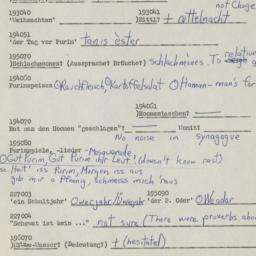 not Chage
193040
'Weihnachten'
193041
)Nittl? + nittelnacht
194051
'der Tag vor Purim' tanis ester
195070
)Schlachmones? (Aussprache! Bräuche!) schlachmones. To relatives
194050
Purimspeisen Rauchfleisch, Kartoffelsalat Haman-man's for
194061
)Homentaschen?
194070
Hat man den Homen "geschlagen"? Womit?
No noise in synagogue
195080
Purimspiele, -lieder - Masquerade.
Gut Purim, Gut Purim ihr Leut' (doesn't know rest)
so Hait' iss Purim, Morgen iss aus
gib mir a Pfennig, schmeiss mich 'raus
227003 195090
'ein Schaltjahr' der "2. Oder" Weadar
227004
"Schewat ist kein ..." not sure (There were proverbs abou
195070
(Bedeutung?) + (hesitates)